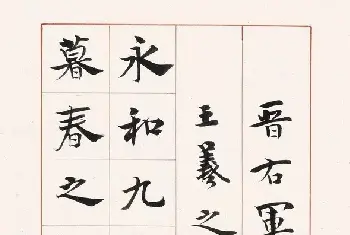 晋右軍
王羲之
永和九
暮春之